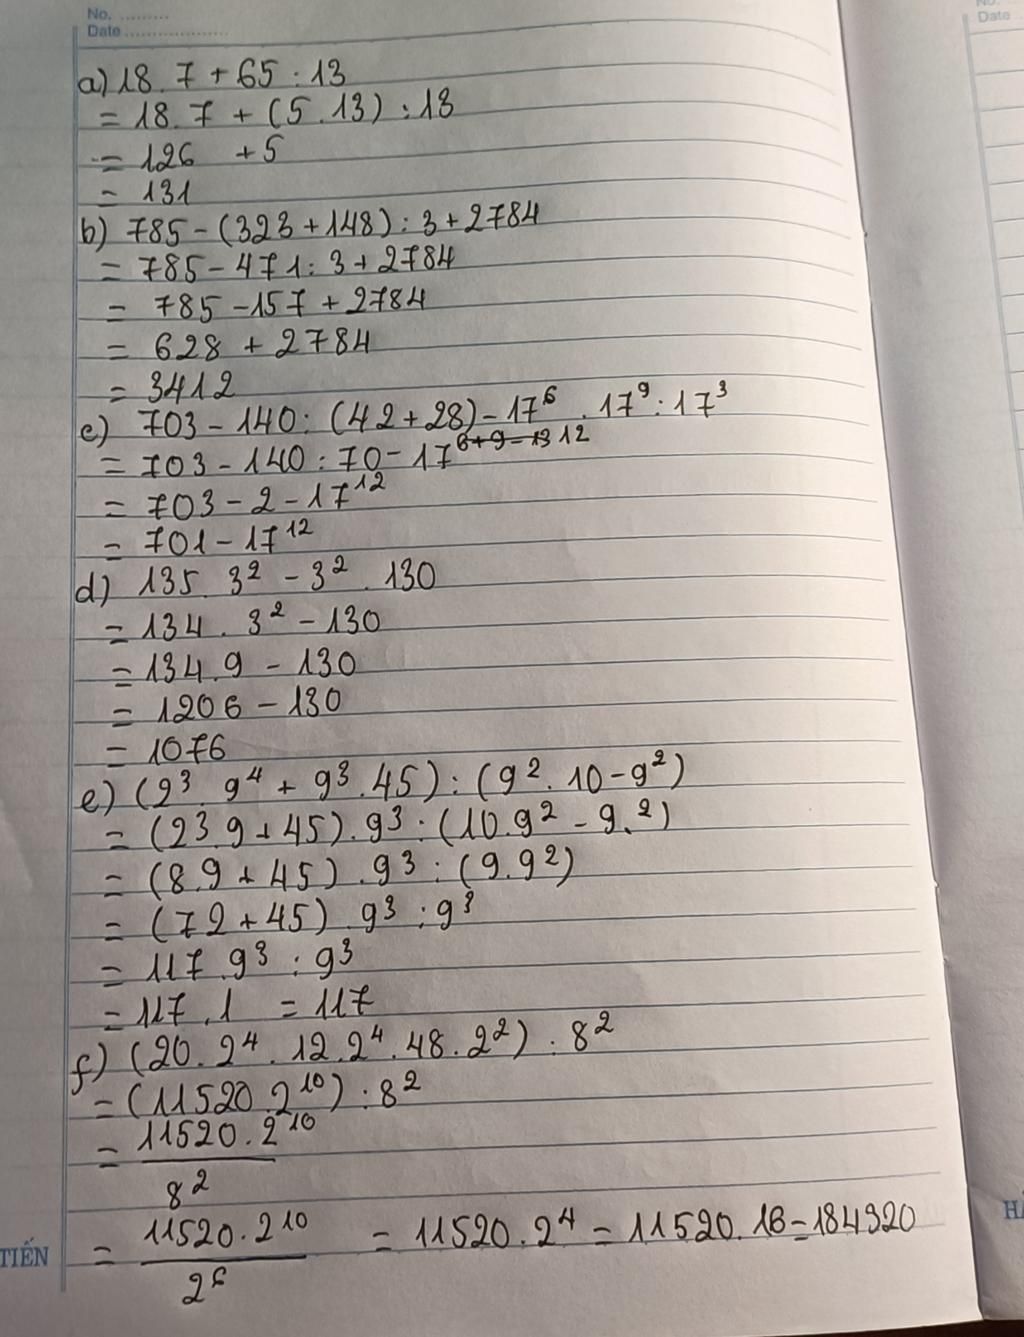 No. .........
Date ...................
a) 18. 7 + 65 : 13
= 18. 7 + (5 . 13) : 13
= 126 + 5
= 131
b) 785 - (323 + 148) : 3 + 2784
= 785 - 471 : 3 + 2784
= 785 - 157 + 2784
= 628 + 2784
= 3412
c) 703 - 140 : (42 + 28) - 17⁶ . 17⁹ : 17³
= 703 - 140 : 70 - 17¹²
= 703 - 2 - 17¹²
= 701 - 17¹²
d) 135. 3² - 3² . 130
= 134 . 3² - 130
= 134 . 9 - 130
= 1206 - 130
= 1076
e) (2³. 9⁴ + 9³ . 45) : (9² . 10 - 9²)
= (2³. 9 + 45) . 9³ : (10. 9² - 9.²)
= (8. 9 + 45) . 9³ : (9. 9²)
= (72 + 45) . 9³ : 9³
= 117 . 9³ : 9³
= 117 . 1 = 117
f) (20. 2⁴ . 12. 2⁴ . 48 . 2²) : 8²
= (11520. 2¹⁰) : 8²
= 11520 . 2¹⁰
8²
= 11520 . 2¹⁰ = 11520 . 2⁴ = 11520 . 16 = 184320
2⁶
TIẾN
Date